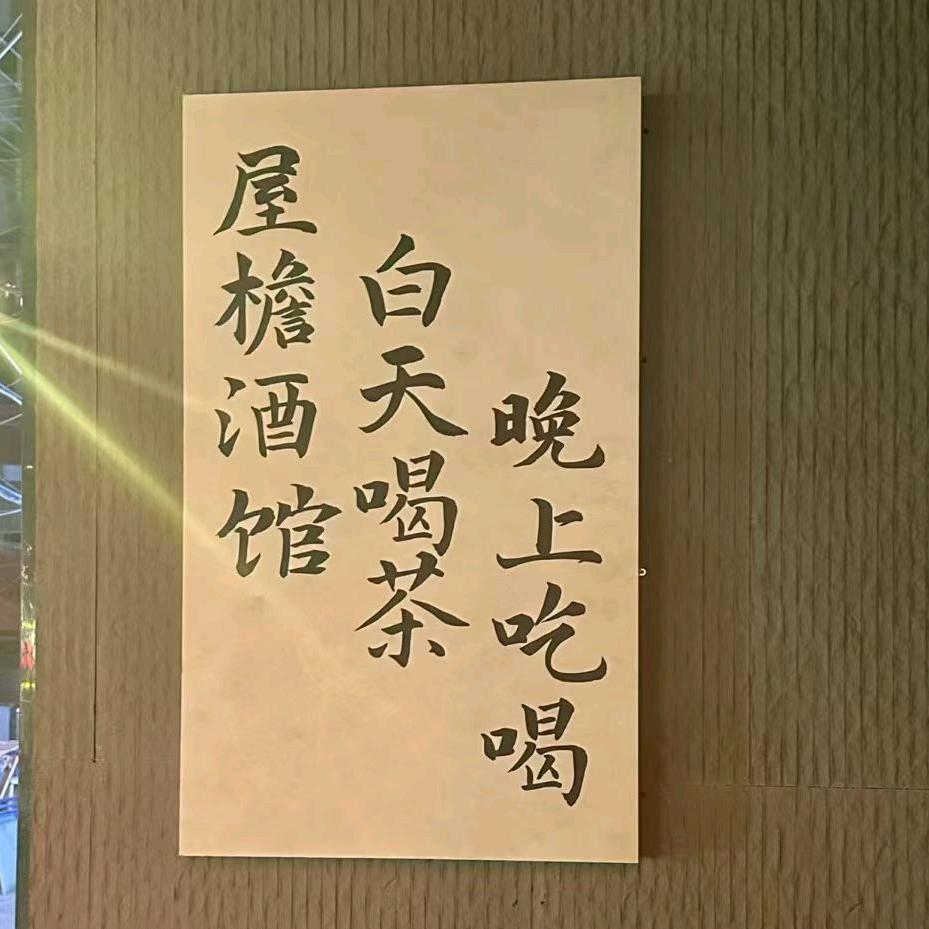 屋檐酒馆
白天喝茶
晚上吃喝